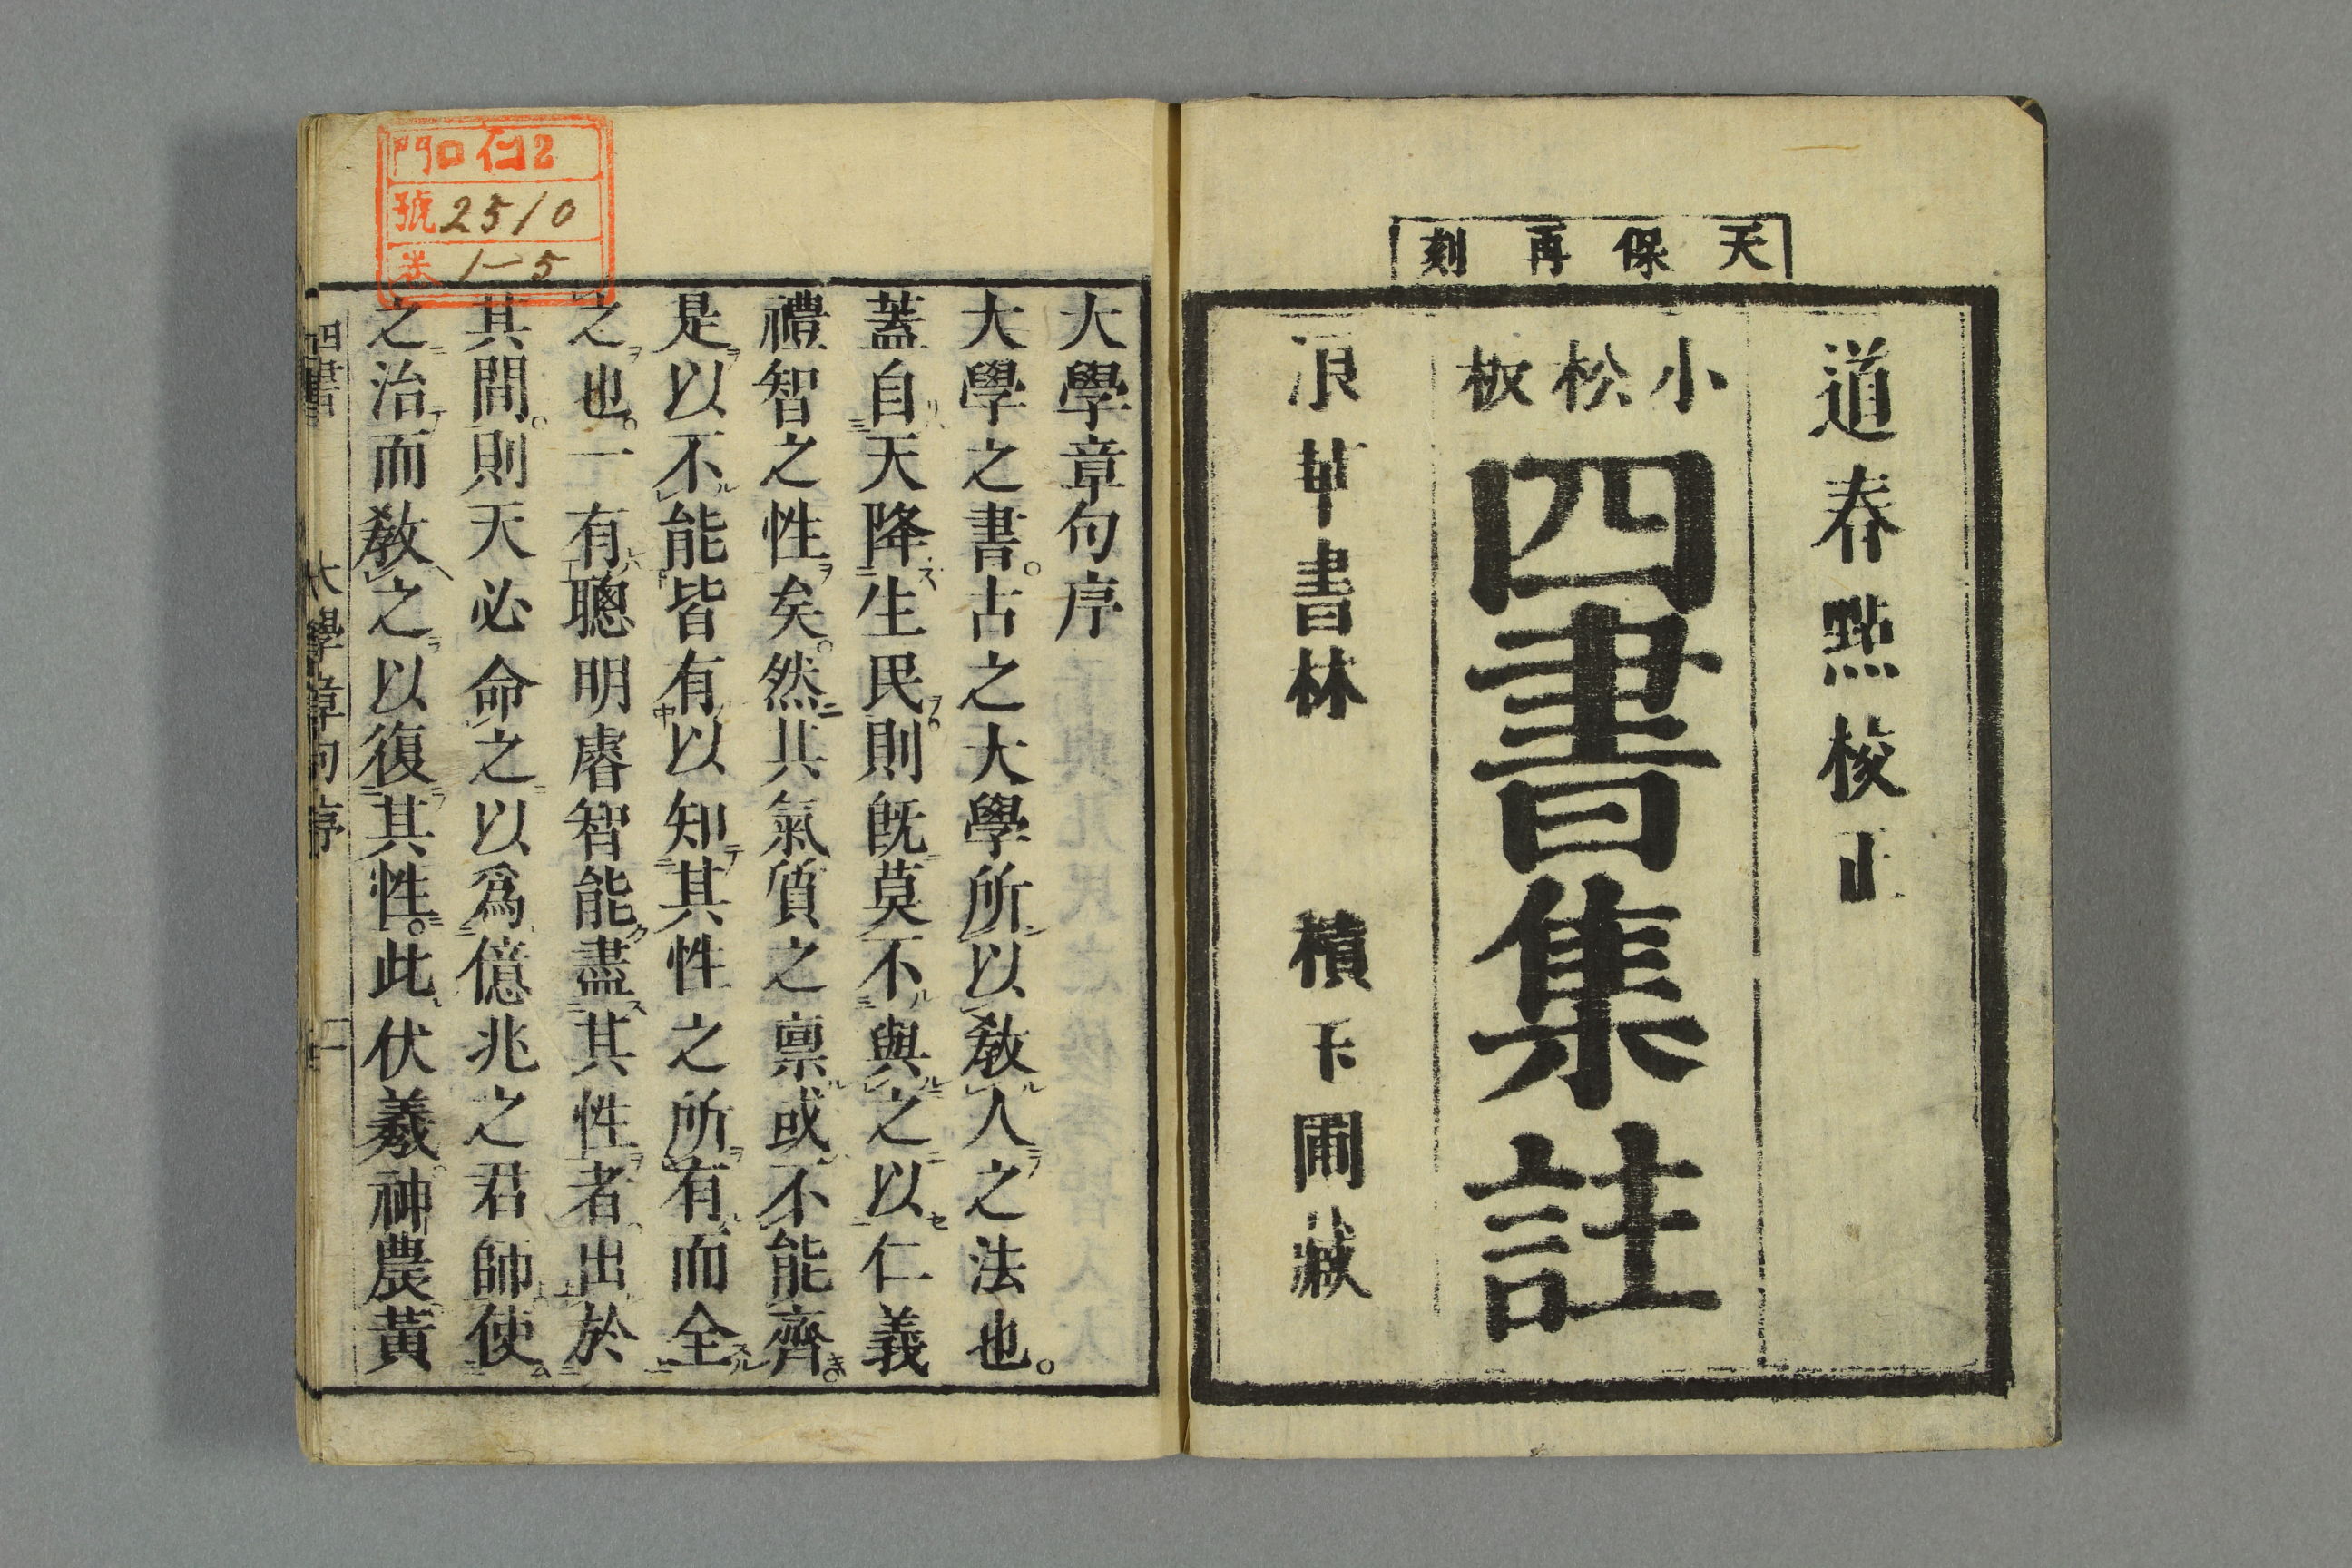 天保再刻
道春點校正
小松板
四書集註
浪華書林 積玉圃藏
門口仁2
號2510
巻1-5
大學章句序
大學之書。古之大學所以敎人之法也。
蓋自天降生民。則旣莫不與之以仁義
禮智之性矣。然其氣質之稟或不能齊。
是以不能皆有以知其性之所有而全
之也。一有聰明睿智能盡其性者。出於
其間。則天必命之以爲億兆之君師使
之治而敎之以復其性。此伏羲神農黃
四書 大學章句序 一